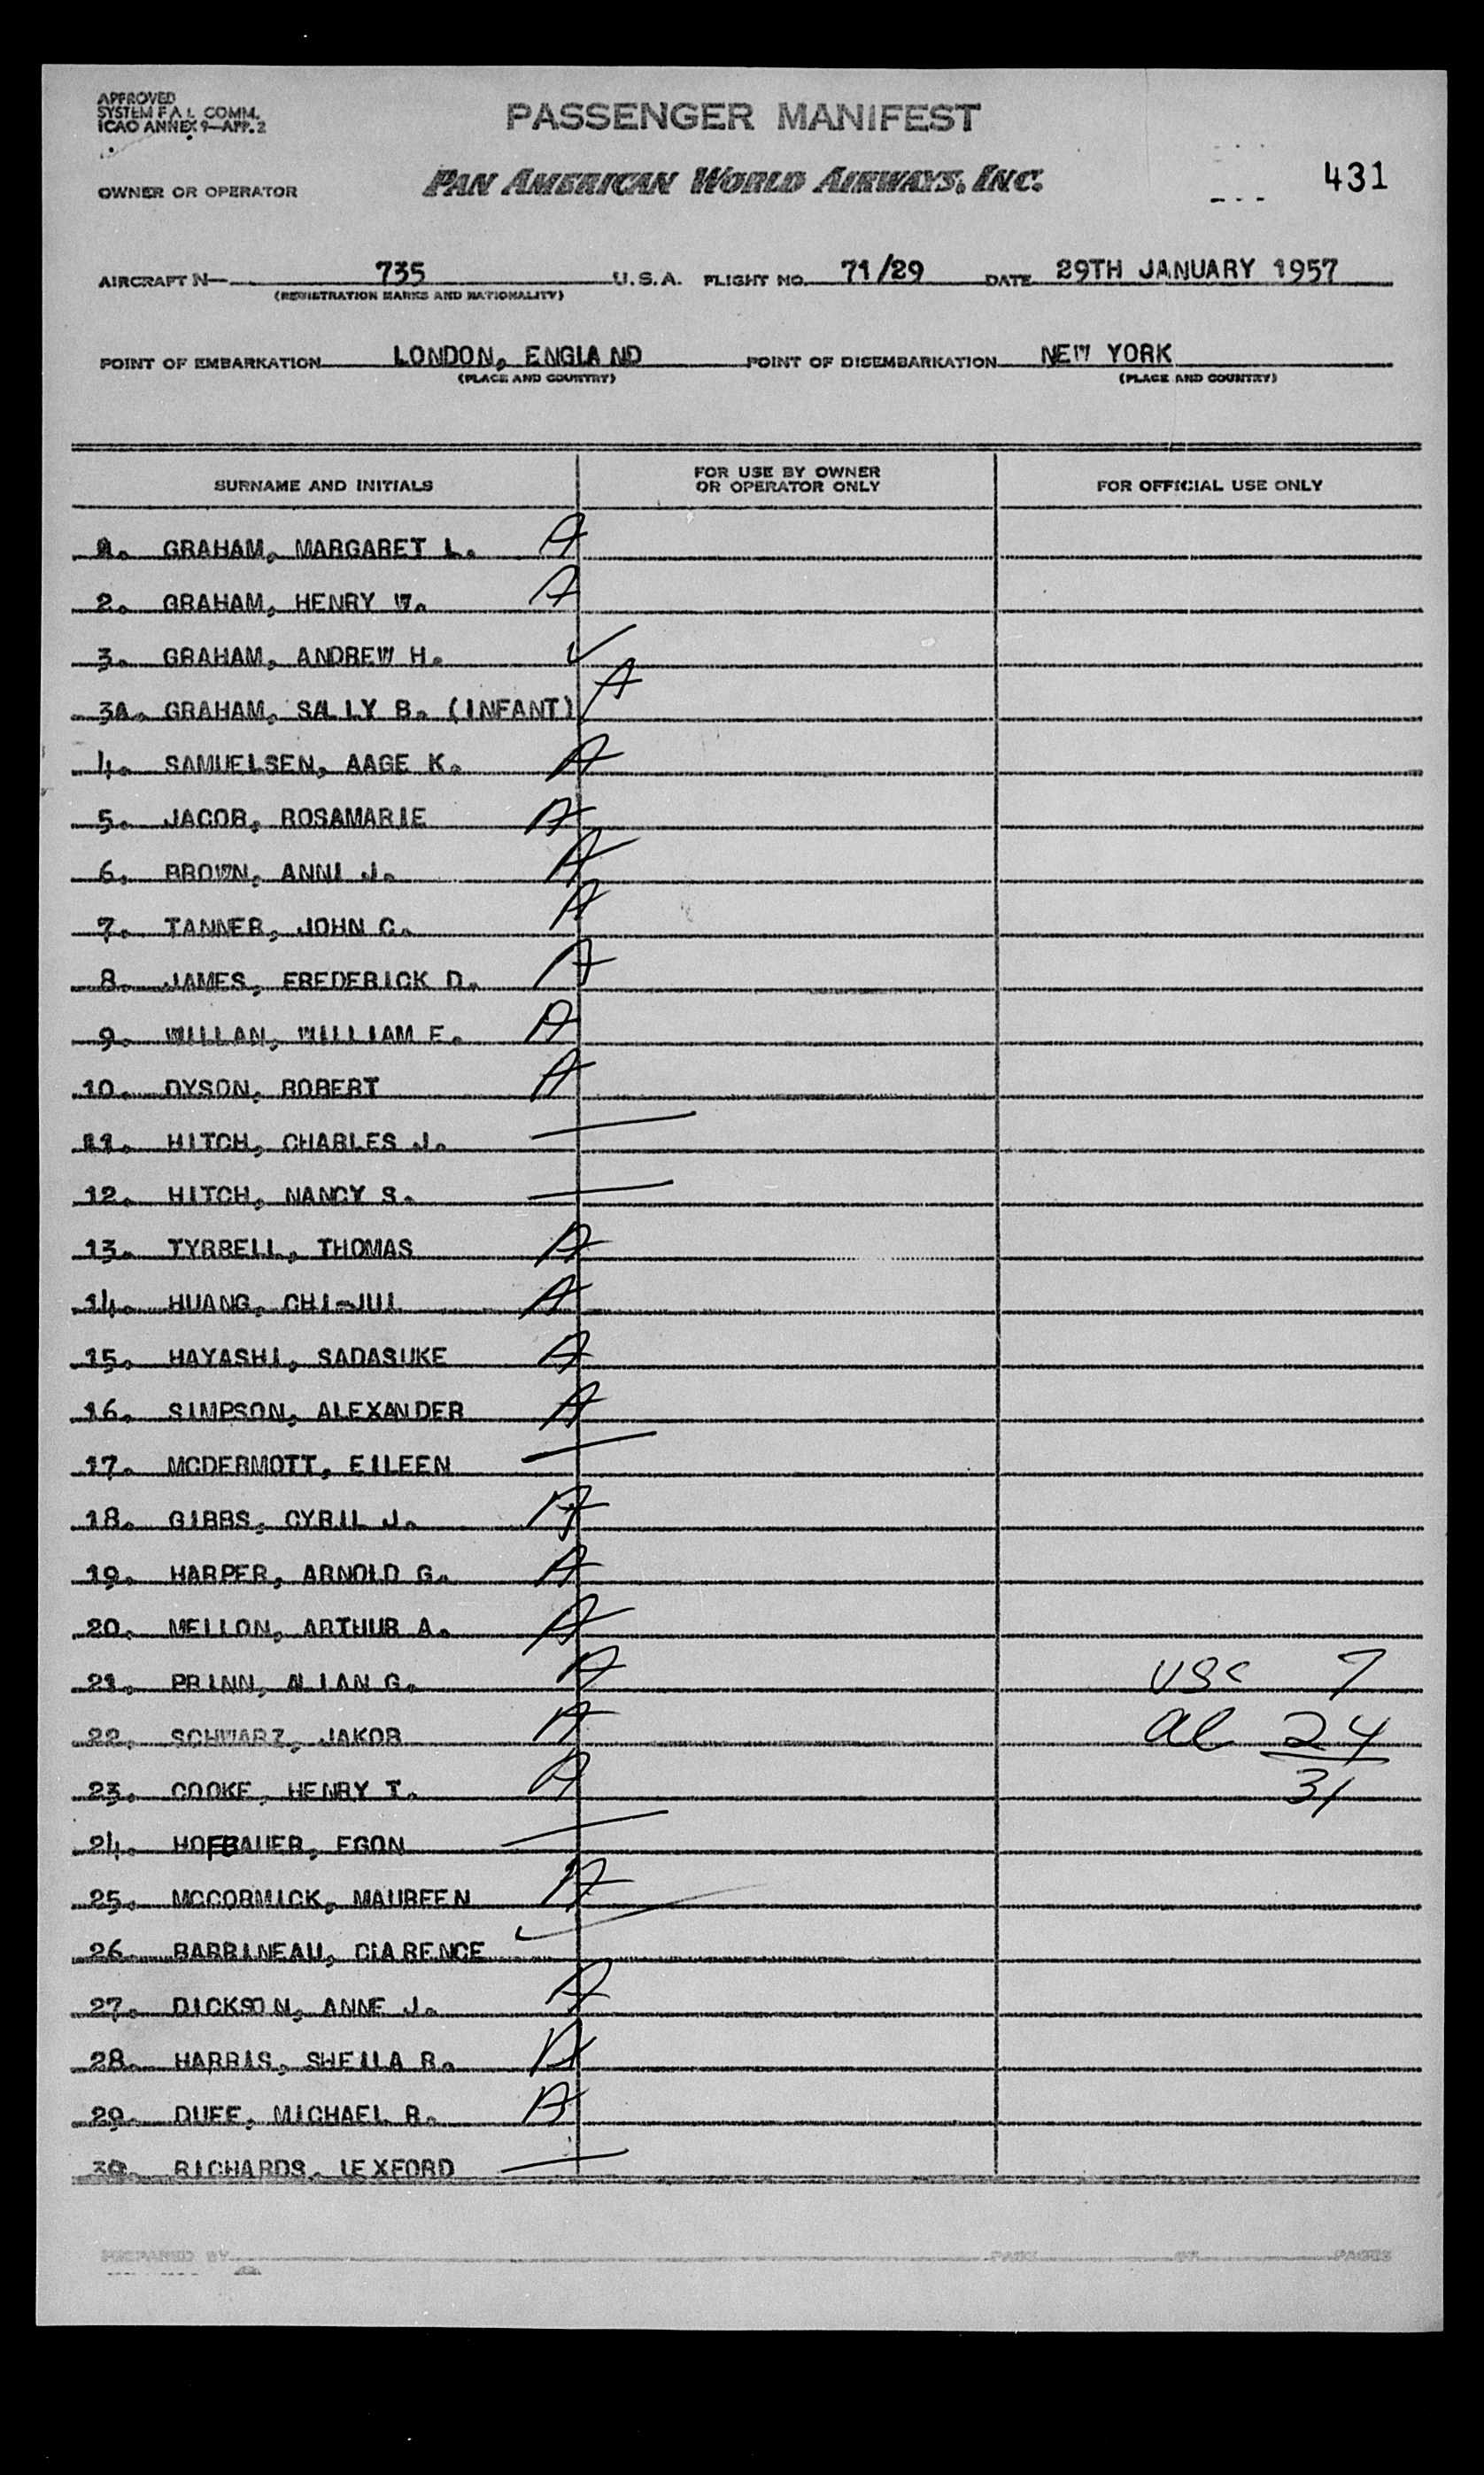 APPROVED
SYSTEM F A L COMM.
ICAO ANNEX 9—APP. 2
PASSENGER MANIFEST
OWNER OR OPERATOR PAN AMERICAN WORLD AIRWAYS, INC. 431
AIRCRAFT N— 735 U.S.A. FLIGHT NO. 71/29 DATE 29TH JANUARY 1957
(REGISTRATION MARKS AND NATIONALITY)
POINT OF EMBARKATION LONDON, ENGLAND POINT OF DISEMBARKATION NEW YORK
(PLACE AND COUNTRY) (PLACE AND COUNTRY)
SURNAME AND INITIALS FOR USE BY OWNER OR OPERATOR ONLY FOR OFFICIAL USE ONLY
1. GRAHAM, MARGARET L. A
2. GRAHAM, HENRY W. A
3. GRAHAM, ANDREW H. ✓
3A. GRAHAM, SALLY B. (INFANT) A
4. SAMUELSEN, AAGE K. A
5. JACOB, ROSAMARIE A
6. BROWN, ANNI J. A
7. TANNER, JOHN C. A
8. JAMES, FREDERICK D. A
9. WILLAN, WILLIAM E. A
10. DYSON, ROBERT A
11. HITCH, CHARLES J. —
12. HITCH, NANCY S. —
13. TYRRELL, THOMAS A
14. HUANG, CHI-JUI A
15. HAYASHI, SADASUKE A
16. SIMPSON, ALEXANDER A
17. MCDERMOTT, EILEEN —
18. GIBBS, CYRIL J. A
19. HARPER, ARNOLD G. A
20. MELLON, ARTHUR A. A
21. PRINN, ALAN G. A USC 7
22. SCHWARZ, JAKOB A al 24
23. COOKE, HENRY T. A 31
24. HOFBAUER, EGON —
25. MCCORMICK, MAUREEN A
26. BARRINEAU, CLARENCE ✓
27. DICKSON, ANNE J. A
28. HARRIS, SHEILA R. A
29. DUFF, MICHAEL R. A
30. RICHARDS, LEXFORD —
PREPARED BY PAGE OF PAGES